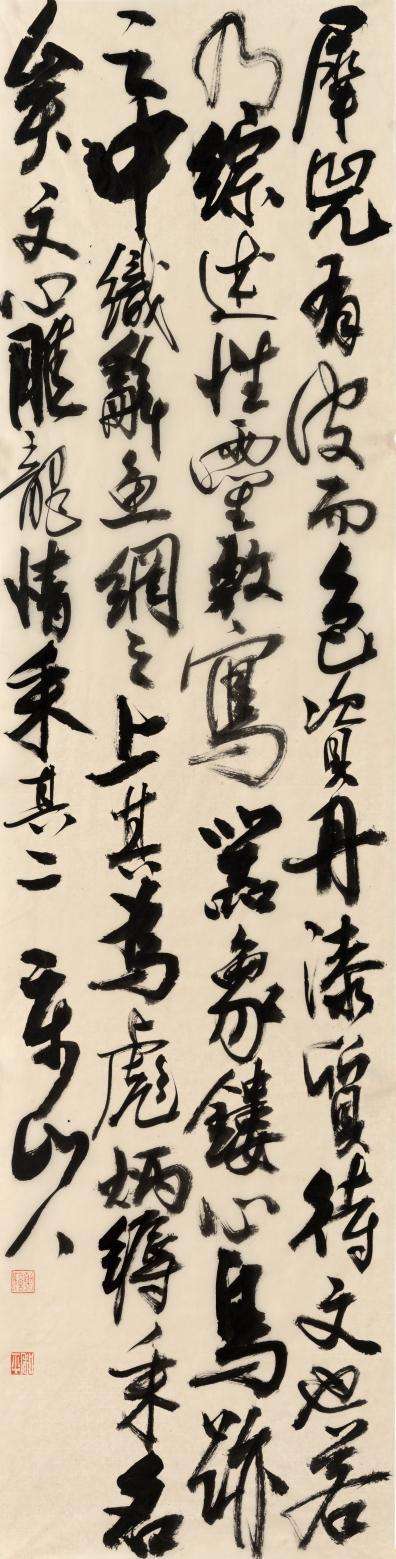 犀兕有皮而色資丹漆質待文也若
乃綜述性靈敷寫器象鏤心鳥跡
之中織辭魚網之上其為彪炳縟采名
矣文心雕龍情采其二 山人